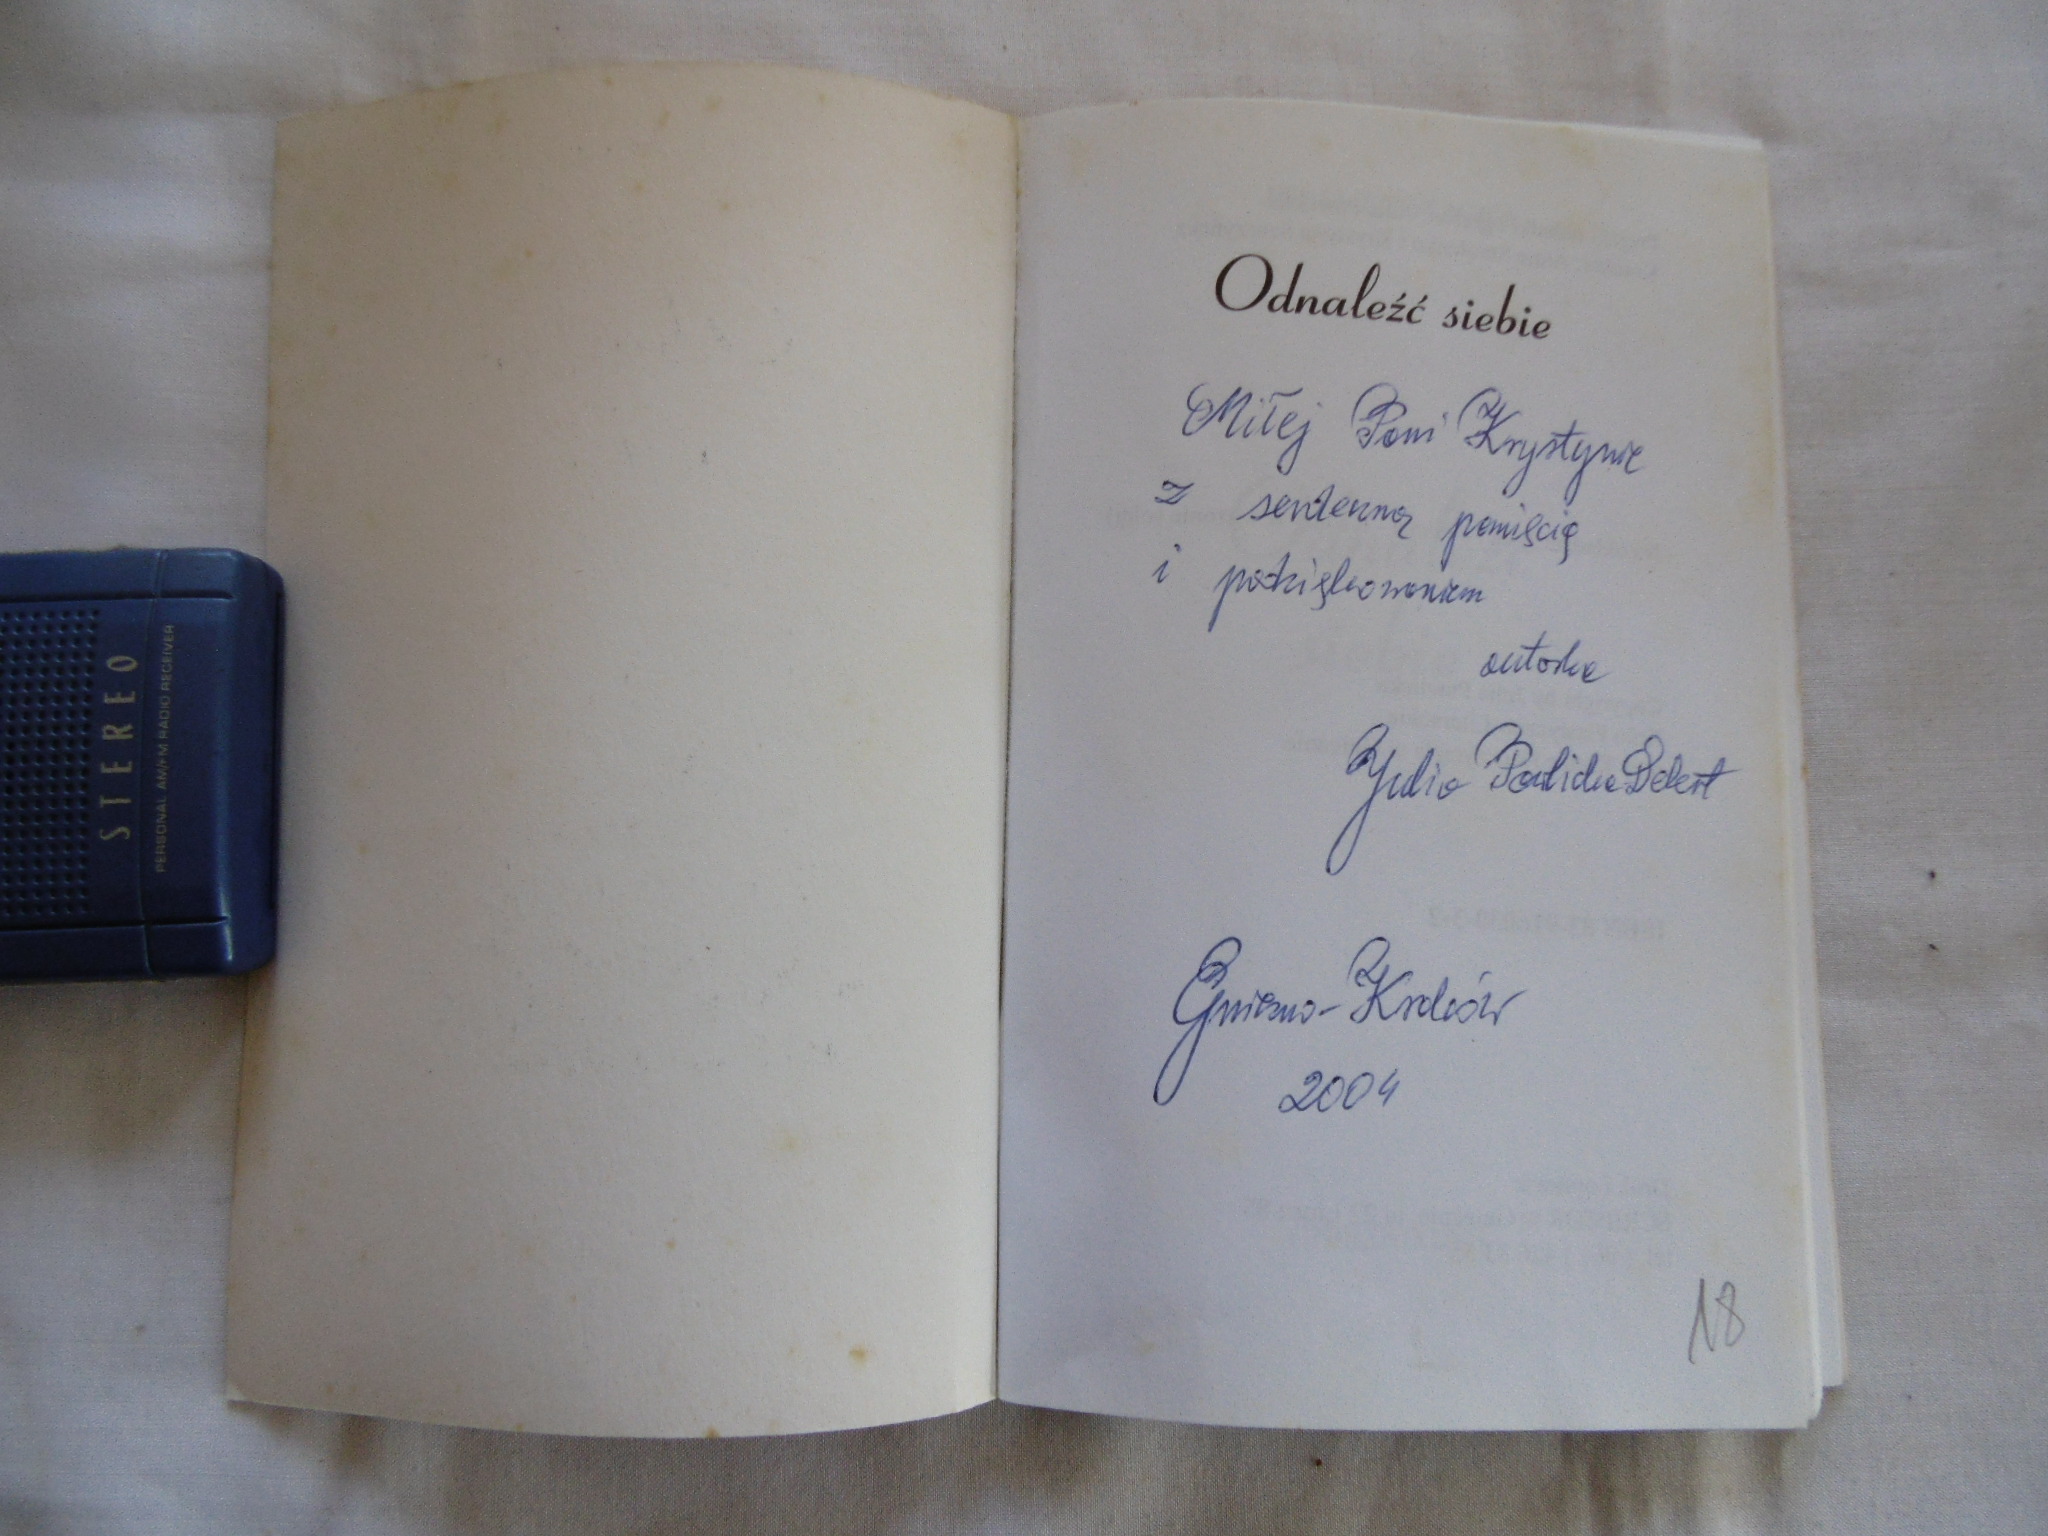 STEREO
PERSONAL AM/FM RADIO RECEIVER
Odnaleźć siebie
Miłej Pani Krystynie
z serdeczną pamięcią
i podziękowaniem
autorka
Julia Dekert
Gniezno-Kraków
2004
18